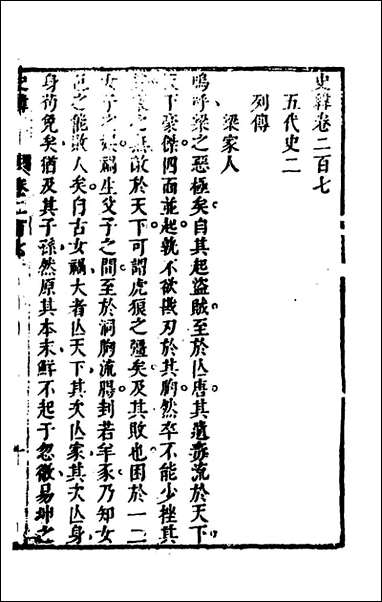 史緯卷二百七
五代史二
列傳
梁家人
嗚呼梁之惡極矣自其起盜賊至於亾唐其遺毒流於天下
天下豪傑四面並起孰不欲戡刃於其胸然卒不能少挫其
之無敵於天下可謂虎狼之彊矣及其敗也困於一二
女子之娛禍生父子之間至於洞胸流腸刲若羊豕乃知女
色之能敗人矣自古女禍大者亾天下其次亾家其次亾身
身茍免矣猶及其子孫然原其本末鮮不起于忽微易坤之
史緯
卷二百七